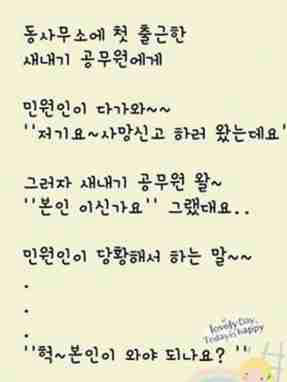 동사무소에 첫 출근한
새내기 공무원에게
민원인이 다가와~~
''저기요~사망신고 하러 왔는데요'
그러자 새내기 공무원 왈~
''본인 이신가요'' 그랬대요..
민원인이 당황해서 하는 말~~
.
.
.
''헉~본인이 와야 되나요? ''
lovely Day,
Today is happy